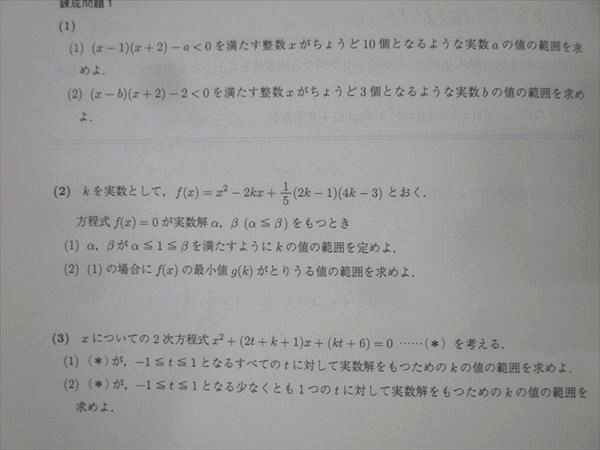 錬成問題1
(1)
(1) (x−1)(x+2)−a<0を満たす整数xがちょうど10個となるような実数aの値の範囲を求
めよ.
(2) (x−b)(x+2)−2<0を満たす整数xがちょうど3個となるような実数bの値の範囲を求め
よ.
(2) kを実数として, f(x)=x²−2kx+1/5(2k−1)(4k−3)とおく.
方程式f(x)=0が実数解α, β(α≦β)をもつとき
(1) α, βがα≦1≦βを満たすようにkの値の範囲を定めよ.
(2) (1)の場合にf(x)の最小値g(k)がとりうる値の範囲を求めよ.
(3) xについての2次方程式x²+(2t+k+1)x+(kt+6)=0 ……(*) を考える.
(1) (*)が, −1≦t≦1となるすべてのtに対して実数解をもつためのkの値の範囲を求めよ.
(2) (*)が, −1≦t≦1となる少なくとも1つのtに対して実数解をもつためのkの値の範囲を
求めよ.